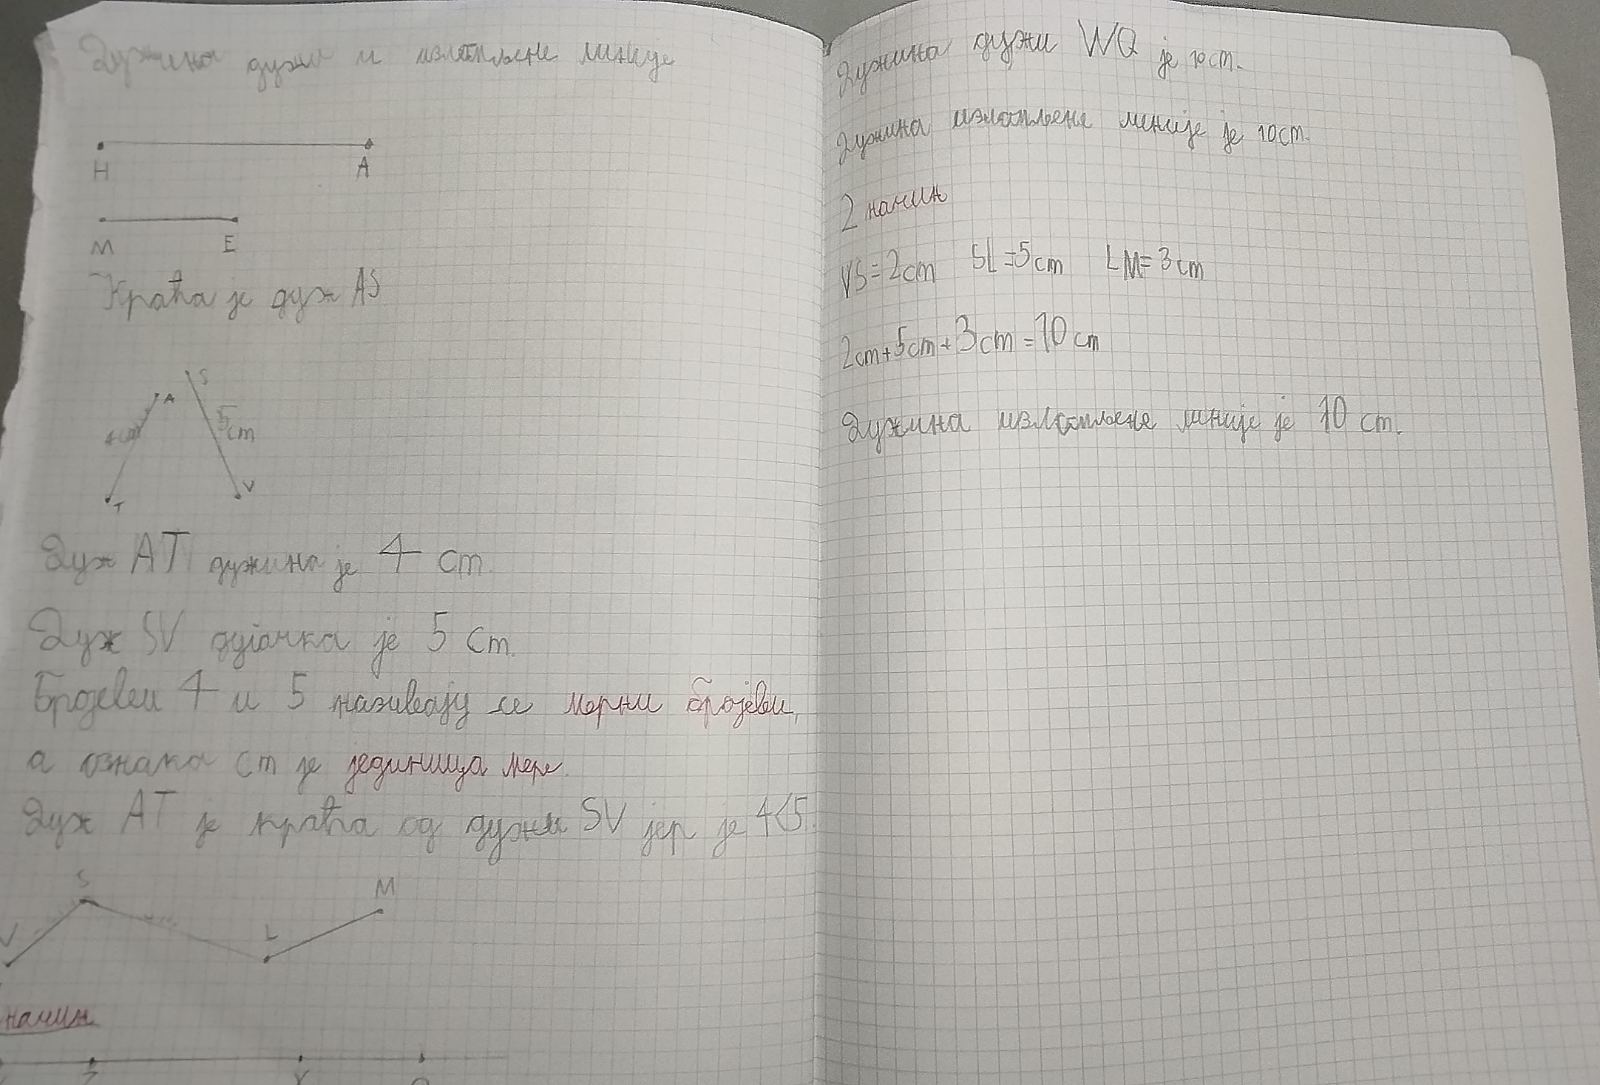 Дужина дужи и изломљене линије
H A
M E
Краћа је дуж AS
S
A
4 cm 5 cm
T V
Дуж AT дужина је 4 cm.
Дуж SV дујачка је 5 cm.
Бројеви 4 и 5 називају се мерни бројеви,
а ознака cm је јединица мере.
Дуж AT је краћа од дужи SV јер је 4<5.
S M
V L
начин
Дужина дужи WQ је 10 cm.
Дужина изломљене линије је 10 cm.
2 начин
VS=2cm SL=5cm LM=3cm
2cm+5cm+3cm=10cm
Дужина изломљене линије је 10 cm.